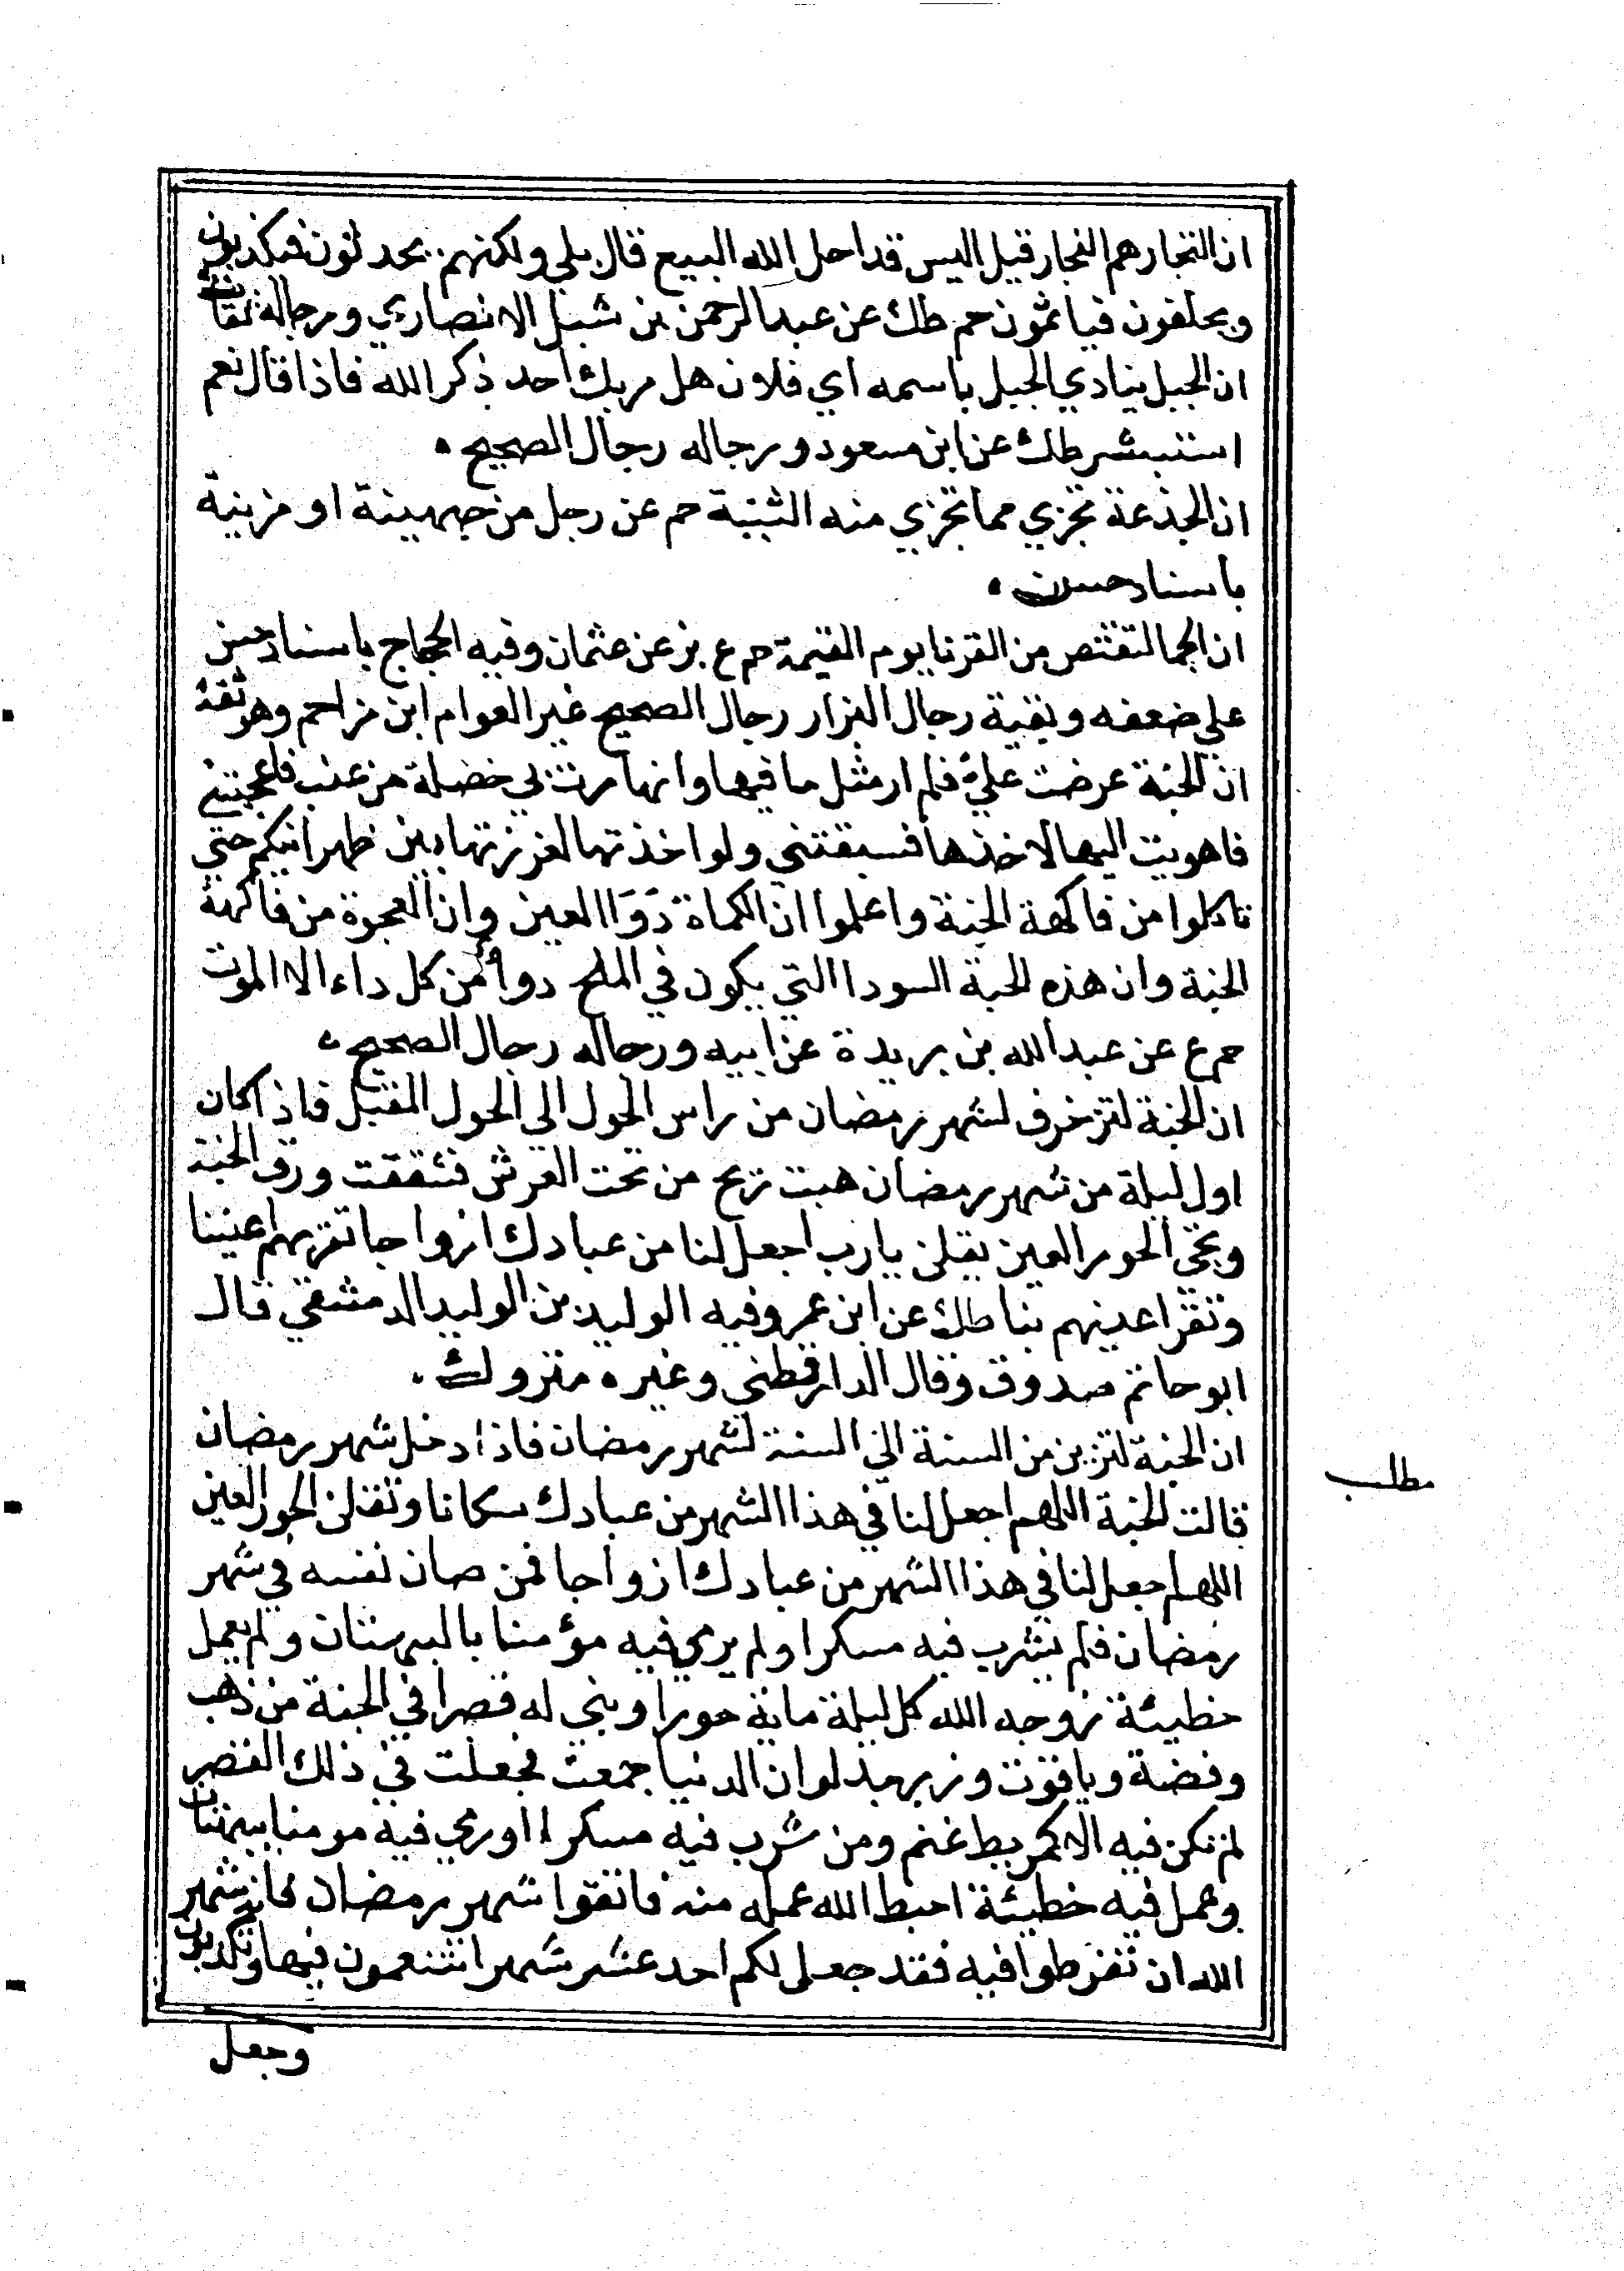 ان التجار هم الفجار قيل اليس قد احل الله البيع قال بلي ولكنهم يحدثون فيكذبون
ويحلفون فياثمون حم طك عن عبد الرحمن بن شبل الانصاري ورجاله ثقات
ان الجبل ينادي الجبل باسمه اي فلان هل مر بك احد ذكر الله فاذا قال نعم
استبشر طك عن ابن مسعود ورجاله رجال الصحيح
ان الجذعة تجزي مما تجزي منه الثنية حم عن رجل من جهينة او مزينة
باسناد حسن
ان الجما لتقتص من القرنا يوم القيمة حم ع بز عن عثمان وفيه الحجاج باسناد حسن
علي ضعفه وبقية رجال البزار رجال الصحيح غير العوام ابن مزاحم وهو ثقة
ان الجنة عرضت عليّ فلم ار مثل ما فيها وانها مرت لي خصلة من عنب فاعجبتني
فاهويت اليها لاخذها فسبقتني ولو اخذتها لغرزتها بين ظهرانيكم حتي
تاكلوا من فاكهة الجنة واعلموا ان الكماة دَوَا العين وان العجوة من فاكهة
الجنة وان هذه الحبة السودا التي يكون في الملح دوأ من كل داء الا الموت
حم ع عن عبد الله بن بريدة عن ابيه ورجاله رجال الصحيح
ان الجنة لتزخرف لشهر رمضان من راس الحول الى الحول المقبل فاذا كان
اول ليلة من شهر رمضان هبت ريح من تحت العرش فشققت ورق الجنة
ويجي الحور العين يقلن يا رب اجعل لنا من عبادك ازواجا تقر بهم اعيننا
وتقر اعينهم بنا طك عن ابن عمر وفيه الوليد بن الوليد الدمشقي قال
ابو حاتم صدوق وقال الدارقطني وغيره متروك
ان الجنة لتزين من السنة الي السنة لشهر رمضان فاذا دخل شهر رمضان
مطلب
قالت الجنة اللهم اجعل لنا في هذا الشهر من عبادك سكانا وتقلن الحور العين
اللهم اجعل لنا في هذا الشهر من عبادك ازواجا فمن صان نفسه في شهر
رمضان فلم يشرب فيه مسكرا ولم يرمي فيه مؤمنا بالبهتان ولم يعمل
خطيئة زوجه الله كل ليلة ماية حورا وبني له قصرا في الجنة من ذهب
وفضة وياقوت وزبرجد لو ان الدنيا جمعت فجعلت في ذلك القصر
لم تكن فيه الا كمربط غنم ومن شرب فيه مسكرا او رمي فيه مومنا ببهتان
وعمل فيه خطيئة احبط الله عمله منه فاتقوا شهر رمضان فانه شهر
الله ان تفرطوا فيه فقد جعل لكم احد عشر شهرا تتنعمون فيها
وجعل